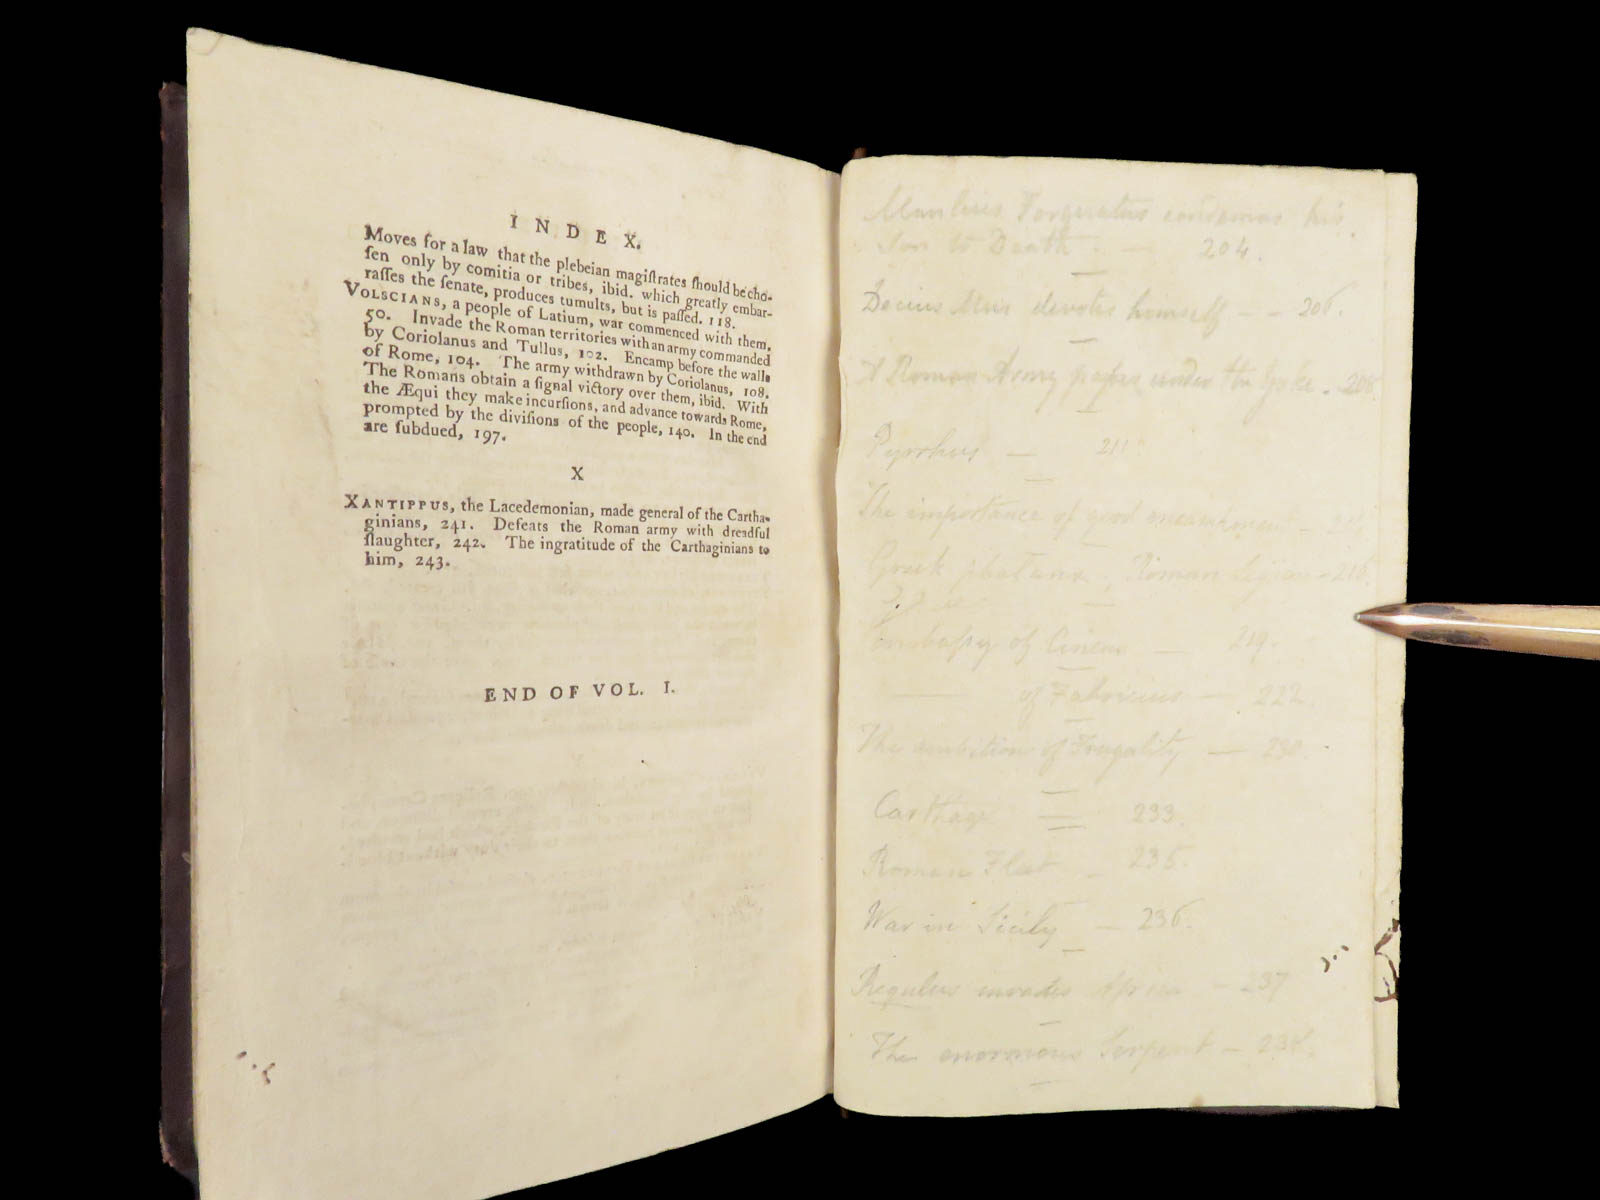 INDEX.
Moves for a law that the plebeian magiſtrates ſhould be cho-
ſen only by comitia or tribes, ibid. which greatly embar-
raſſes the ſenate, produces tumults, but is paſſed. 118.
VOLSCIANS, a people of Latium, war commenced with them,
50. Invade the Roman territories with an army commanded
by Coriolanus and Tullus, 102. Encamp before the walls
of Rome, 104. The army withdrawn by Coriolanus, 108.
The Romans obtain a ſignal victory over them, ibid. With
the Æqui they make incurſions, and advance towards Rome,
prompted by the diviſions of the people, 140. In the end
are ſubdued, 197.
X
XANTIPPUS, the Lacedemonian, made general of the Cartha-
ginians, 241. Defeats the Roman army with dreadful
ſlaughter, 242. The ingratitude of the Carthaginians to
him, 243.
END OF VOL. I.
Manlius Torquatus condemns his
son to Death - 204.
Decius Mus devotes himself - - 206.
A Roman Army passes under the Yoke - 208.
Pyrrhus - 211
The importance of good encampment -
Greek phalanx. Roman legion - 216.
Embassy of Cineas - 219.
of Fabricius - 222
The ambition of Frugality - 230.
Carthage 233.
Roman Fleet - 235.
War in Sicily - 236.
Regulus invades Africa - 237
The enormous Serpent - 238.